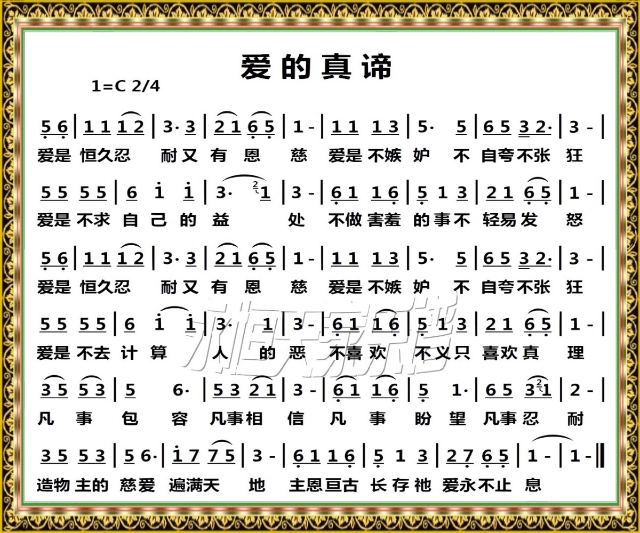 爱的真谛
1=C 2/4
5 6 | 1 1 1 2 | 3· 3 | 2 1 6 5 | 1 - | 1 1 1 3 | 5· 5 | 6 5 3 2· | 3 - |
爱是 恒久忍 耐又 有恩 慈 爱是不嫉 妒 不 自夸不张 狂
5 5 5 5 | 6 1 1 | 3· 2 1 | 3 - | 6 1 1 6 | 5 1 3 | 2 1 6 5 |
爱是 不求 自己的 益 处 不做害羞 的事不 轻易发 怒
5 6 | 1 1 1 2 | 3· 3 | 2 1 6 5 | 1 - | 1 1 1 3 | 5· 5 | 6 5 3 2· | 3 - |
爱是 恒久忍 耐又 有恩 慈 爱是不嫉 妒 不 自夸不张 狂
5 5 5 5 | 6 1 1 | 3· 1 | 3 - | 6 1 1 6 | 5 1 3 | 2 1 6 5 | 1 - |
爱是 不去 计算 人 的 恶 不喜欢 不义只 喜欢真 理
3 5 5 3 | 5 6· | 5 3 2 1 | 3 - | 6 1 1 6 | 5 1· | 6 5 3 2 1 | 2 - |
凡事 包容 凡事相 信 凡事 盼望 凡事忍 耐
3 5 5 3 | 5 6· | 1 7 7 5 | 3 - | 6 1 1 6 | 5 1 3 | 2 7 6 5 | 1 - | 1 - ‖
造物主的 慈爱 遍满天 地 主恩亘古 长存祂 爱永不止 息